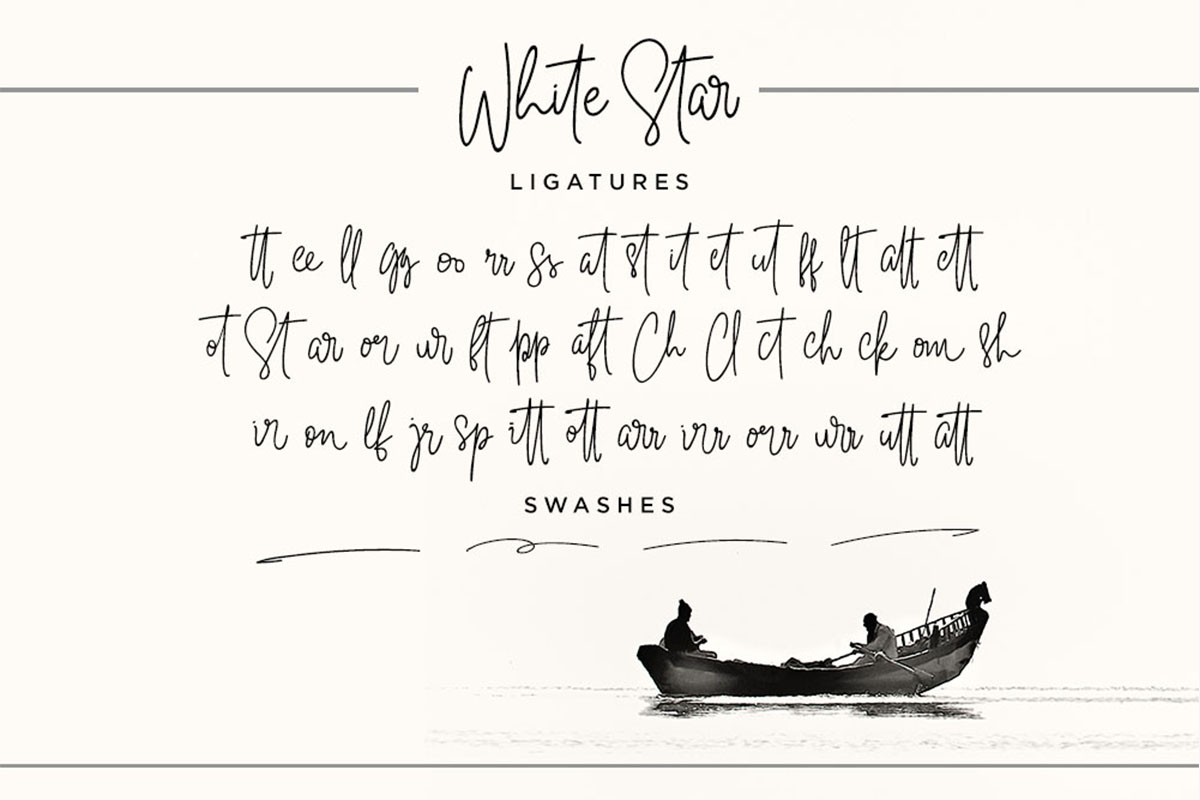 White Star
LIGATURES
tt ee ll gg oo rr ss at st it et ut ff lt att ett
ot St ar or ur ft pp aft Ch Cl ct ch ck om sh
ir on lf jr sp itt ott arr irr orr urr utt att
SWASHES